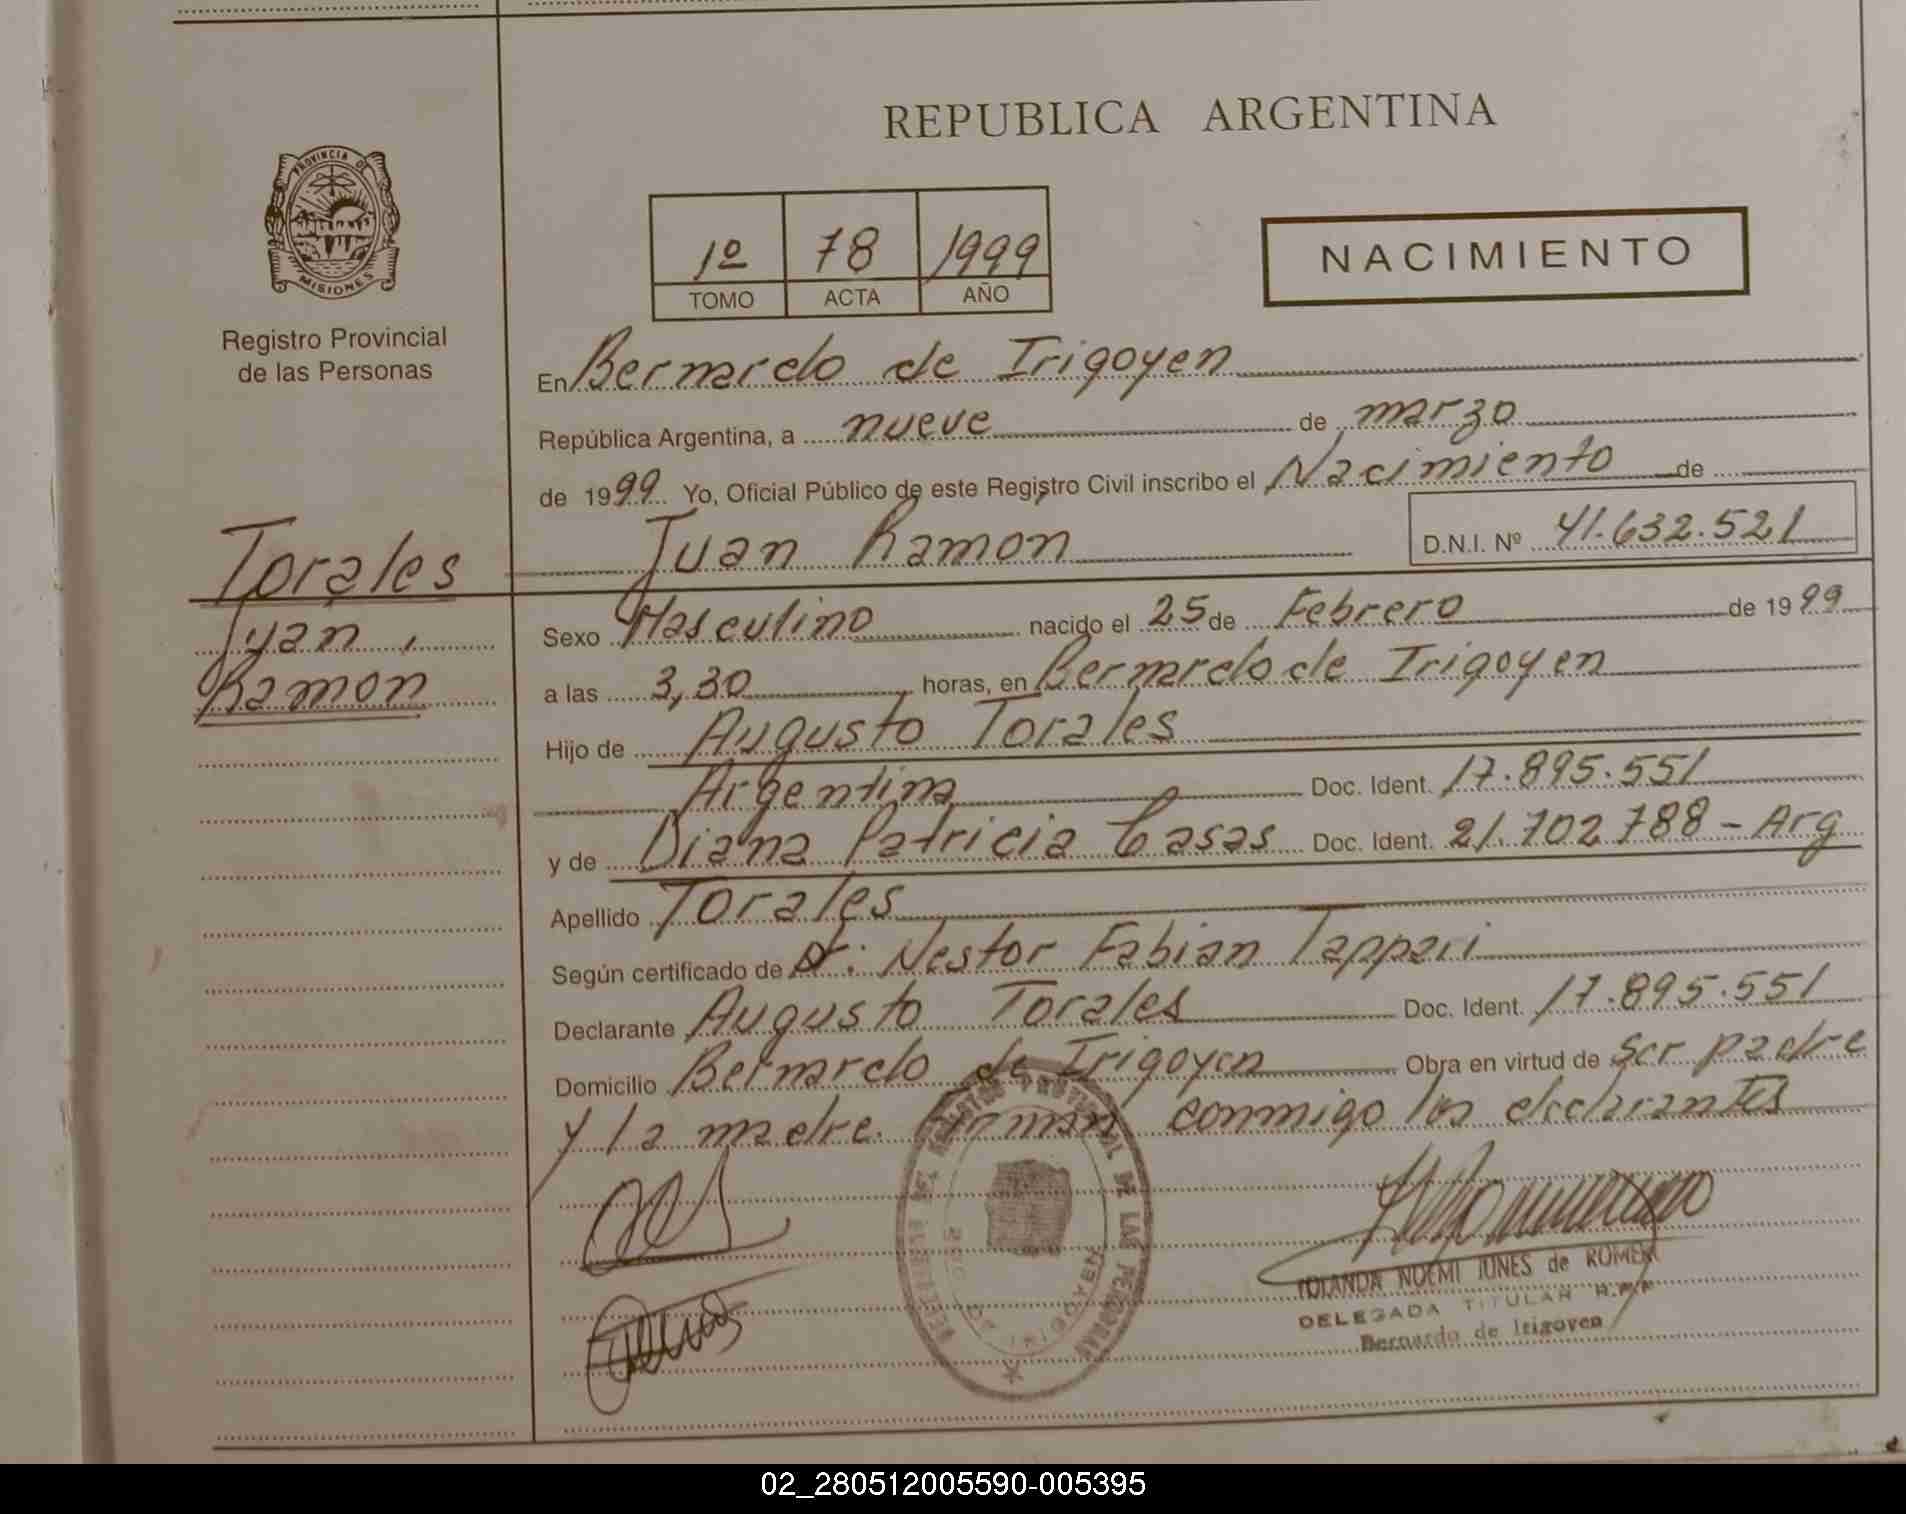 REPUBLICA ARGENTINA
PROVINCIA DE
MISIONES
Registro Provincial
de las Personas
1º 78 1999
TOMO ACTA AÑO
NACIMIENTO
En Bernardo de Irigoyen
República Argentina, a nueve de marzo
de 1999 Yo, Oficial Público de este Registro Civil inscribo el Nacimiento de
Juan Ramon D.N.I. Nº 41.632.521
Torales
Juan
Ramon
Sexo Masculino nacido el 25 de Febrero de 1999
a las 3,30 horas, en Bernardo de Irigoyen
Hijo de Augusto Torales
Argentina Doc. Ident. 17.895.551
y de Diana Patricia Casas Doc. Ident. 21.702.788 - Arg
Apellido Torales
Según certificado de Dr. Nestor Fabian Tappari
Declarante Augusto Torales Doc. Ident. 17.895.551
Domicilio Bernardo de Irigoyen Obra en virtud de Ser padre
y la madre. Firman conmigo los declarantes
YOLANDA NOEMI JUNES de ROMERO
DELEGADA TITULAR R.P.P
Bernardo de Irigoyen
02_280512005590-005395